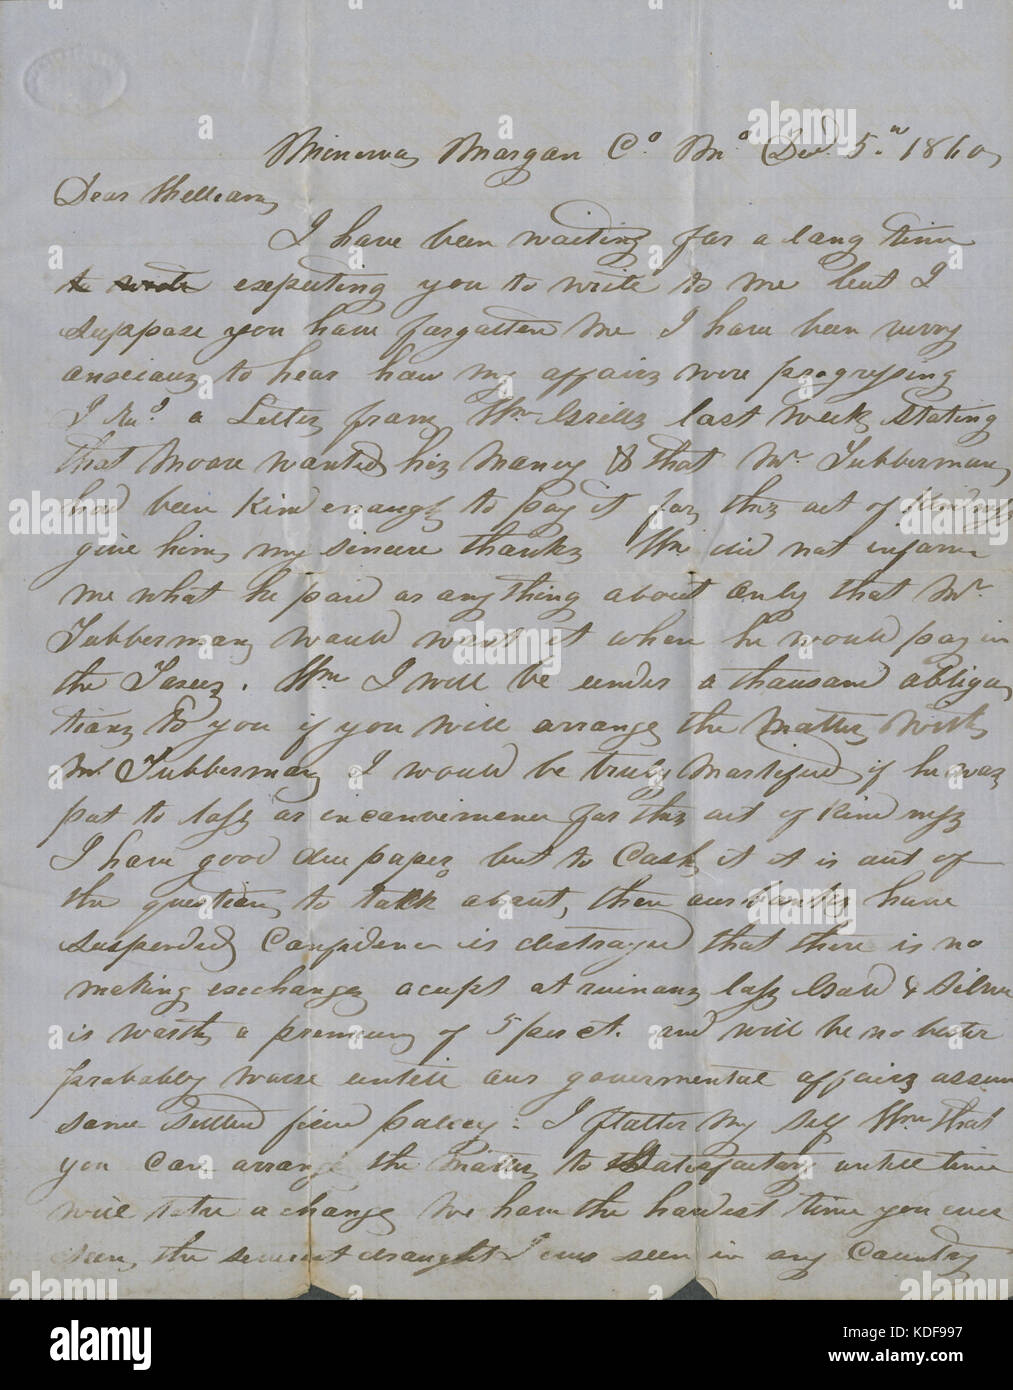 Minerva Morgan Co. Mo. Dec. 5th 1860
Dear William
I have been waiting for a long time
to write expecting you to write to me but I
suppose you have forgotten me I have been very
anxious to hear how my affairs were progressing
I Recd a Letter from Wm last week stating
that Moore wanted his Money & that Mr. Tubberman
had been kind enough to pay it for this act of kindness
give him my sincere thanks Wm did not inform
me what he paid or any thing about only that Mr.
Tubberman would want it when he would pay in
the Taxes. Wm I will be under a thousand obliga
tions to you if you will arrange the matter with
Mr Tubberman I would be truly Mortified if he was
put to loss or inconvenience for this act of kindness
I have good due paper but to Cash it it is out of
the question to talk about, then our banks have
suspended Confidence is destroyed that there is no
making exchange except at ruinous loss Gold & Silver
is worth a premium of 5 per ct. and will be no better
probably worse untill our governmental affairs assume
some settled policy. I flatter my self Wm that
you can arrange the matter to Satisfactory untill time
will take a change We have the hardest time you ever
seen, the draught I ever seen in any Country
alamy
alamy
Image ID: KDF997
www.alamy.com